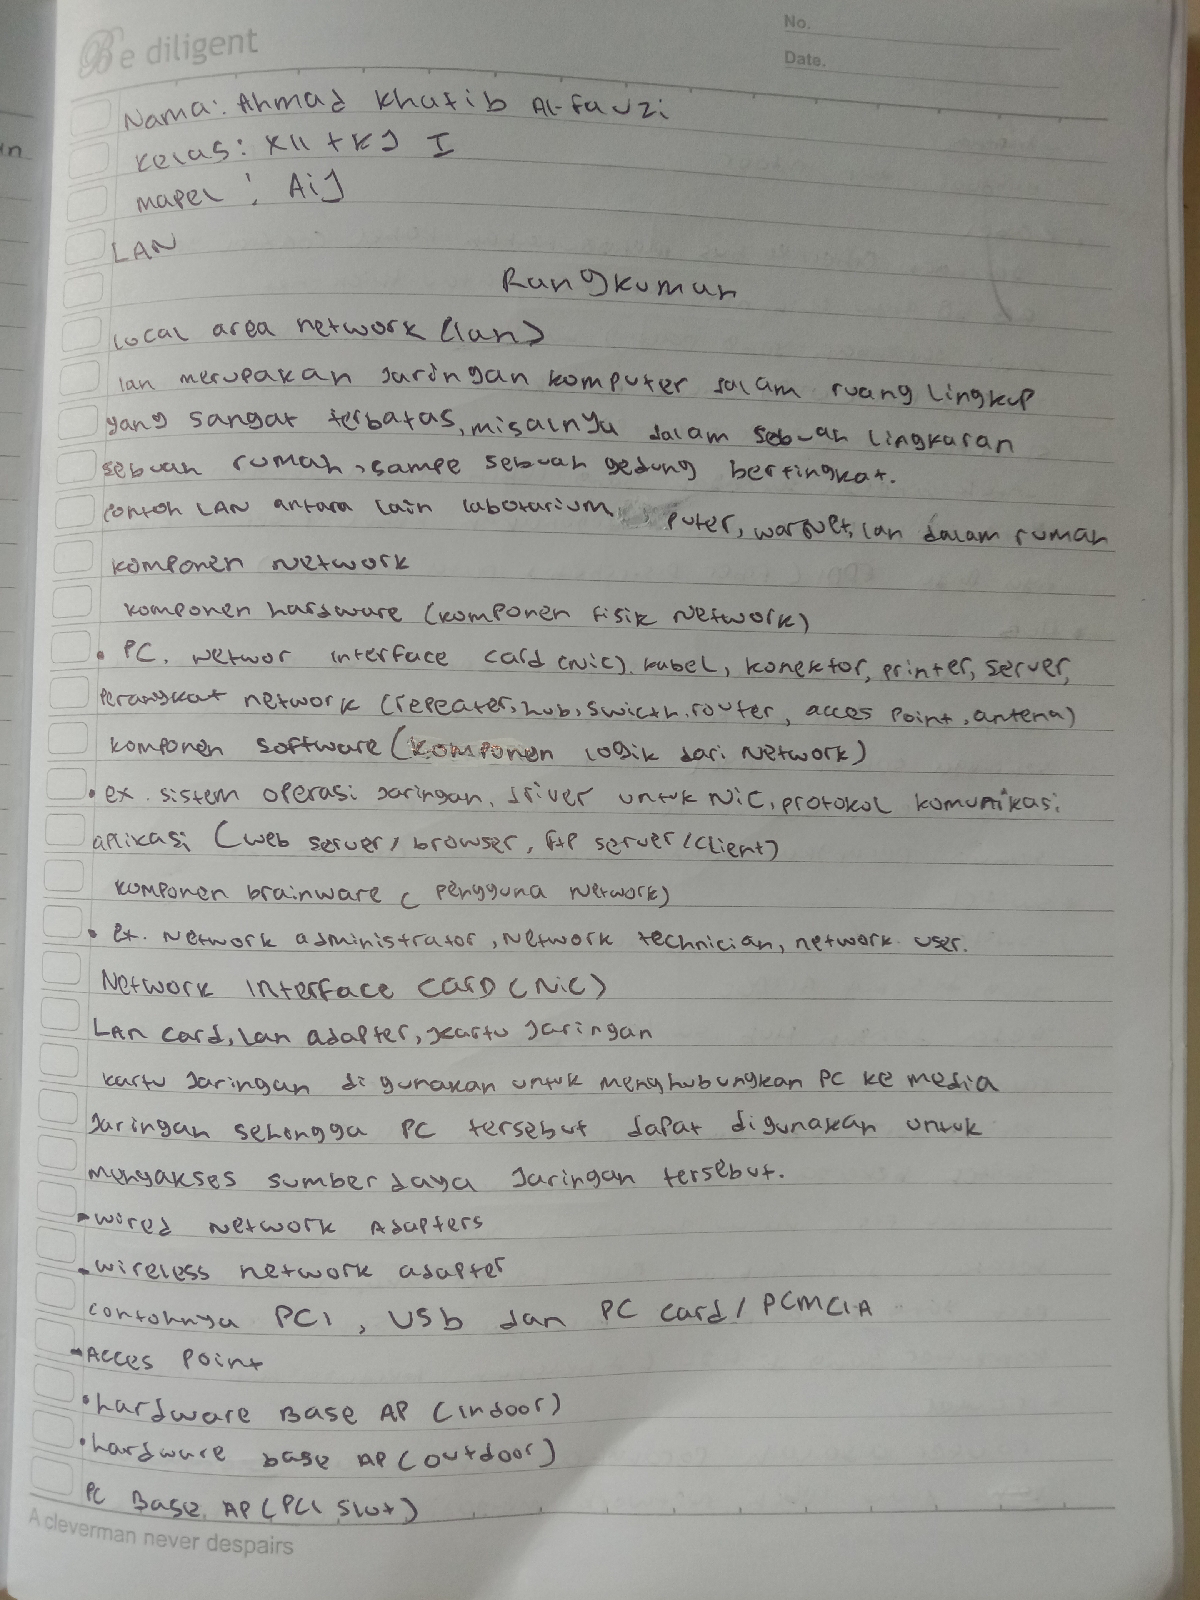 Be diligent
No.
Date.
in
Nama: Ahmad Khatib Al-Fauzi
Kelas: XII TKJ I
mapel : AiJ
LAN
Rangkuman
Local area network (lan)
lan merupakan Jaringan komputer dalam ruang Lingkup
yang sangat terbatas, misalnya dalam sebuah Lingkaran
sebuah rumah, sampe sebuah gedung bertingkat.
contoh LAN antara lain labotarium puter, warnet, lan dalam rumah
komponen Network
komponen hardware (komponen fisik Network)
• PC. Networ interface card (NiC). kabel, konektor, printer, server,
Perangkat network (repeater, hub, swicth. router, acces Point, antena)
komponen software (Komponen logik dari Network)
• ex. sistem operasi Jaringan, driver untuk NiC, protokol komunikasi
aplikasi (web server/ browser, ftp server/client)
komponen brainware ( pengguna network)
• Ex. Network administrator, Network technician, network user.
Network Interface CARD (NiC)
LAN Card, Lan adapter, kartu Jaringan
kartu Jaringan di gunakan untuk menghubungkan PC ke media
Jaringan sehongga PC tersebut dapat digunakan untuk
mengakses sumber daya Jaringan tersebut.
• wired Network Adapters
• wireless network adapter
contohnya PCI, USb dan PC Card/ PCMCIA
• Acces Point
• hardware Base AP (indoor)
• hardware base AP (outdoor)
PC Base AP (PCI Slot)
A cleverman never despairs